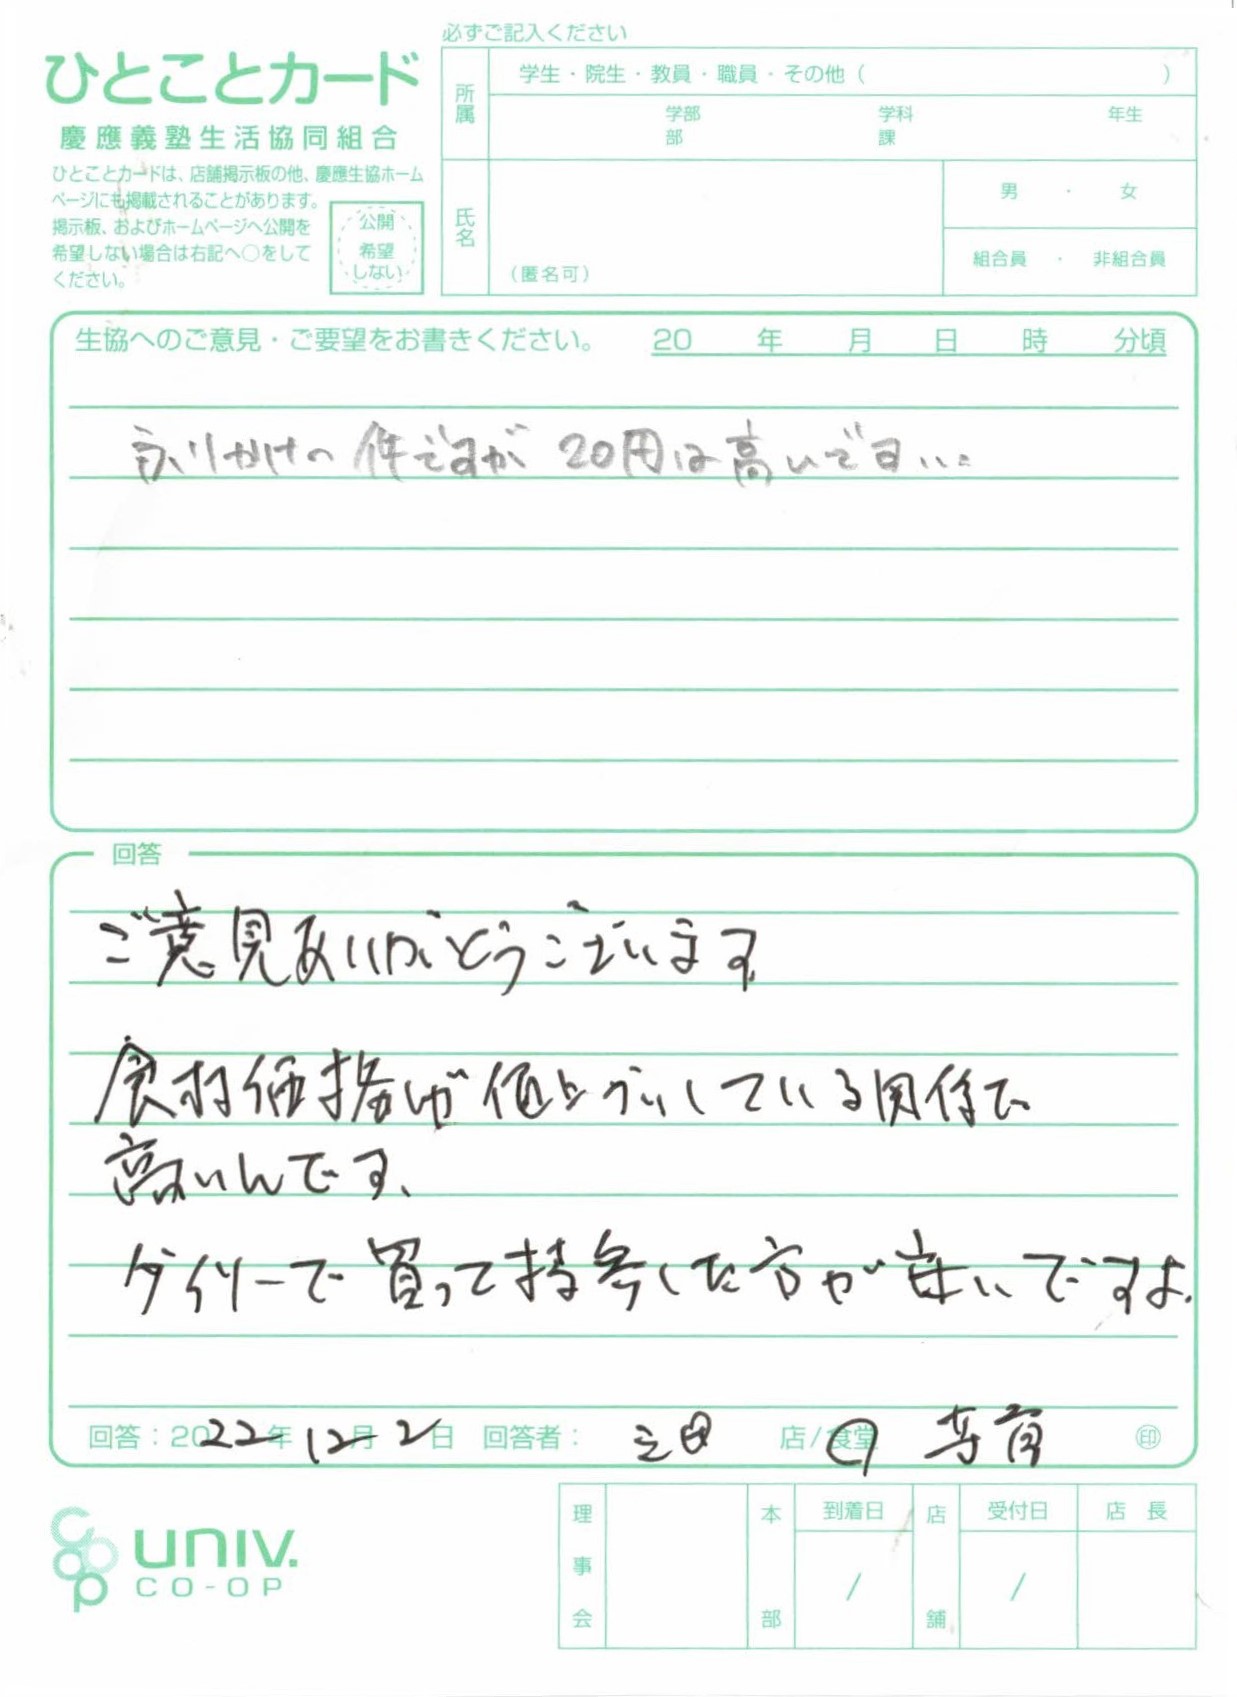 必ずご記入ください
ひとことカード
慶應義塾生活協同組合
ひとことカードは、店舗掲示板の他、慶應生協ホーム
ページにも掲載されることがあります。
掲示板、およびホームページへ公開を
希望しない場合は右記へ○をして
ください。
公開
希望
しない
所属
学生・院生・教員・職員・その他（ ）
学部 学科 年生
部 課
氏名
（匿名可）
男 ・ 女
組合員 ・ 非組合員
生協へのご意見・ご要望をお書きください。 20 年 月 日 時 分頃
ふりかけの件ですが 20円は高いです…
回答
ご意見ありがとうございます
食材価格が値上がりしている関係で
高いんです、
ダイソーで買って持参した方が安いですよ。
回答：2022年12月2日 回答者： 三田 店/食堂
印
univ.
CO-OP
理事会
本部
到着日
/
店舗
受付日
/
店 長